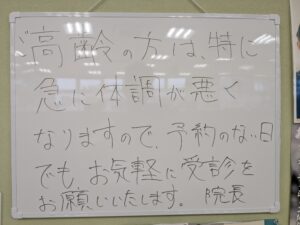 ご高齢の方は、特に
急に体調が悪く
なりますので、予約のない日
でも、お気軽に受診を
お願いいたします。 院長